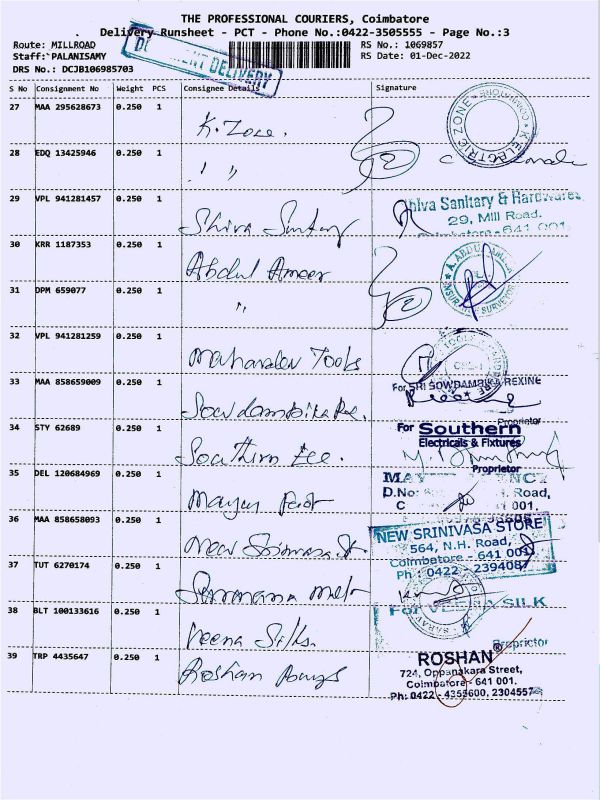 THE PROFESSIONAL COURIERS, Coimbatore
Delivery Runsheet - PCT - Phone No.:0422-3505555 - Page No.:3
Route: MILLROAD
RS No.: 1069857
Staff: PALANISAMY
RS Date: 01-Dec-2022
DRS No.: DCJB106985703
DELIVERY
S No Consignment No Weight PCS Consignee Details Signature
27 MAA 295628673 0.250 1
K. Zone.
ELECTRIC ZONE
28 EDQ 13425946 0.250 1
" "
29 VPL 941281457 0.250 1
Shiva
Shiva Sanitary & Hardwares
29, Mill Road.
Coimbatore - 641 001
30 KRR 1187353 0.250 1
Abdul Ameer
SURVEYOR
31 DPM 659077 0.250 1
"
32 VPL 941281259 0.250 1
Mahaveer Tools
33 MAA 858659009 0.250 1
For SRI SOWDAMBIKA REXINE
Proprietor
34 STY 62689 0.250 1
Southern Ele.
For Southern
Electricals & Fixtures
Proprietor
35 DEL 120684969 0.250 1
D.No:
Road,
001.
36 MAA 858658093 0.250 1
New Srinivasa St.
NEW SRINIVASA STORE
564, N.H. Road,
Coimbatore - 641 001
Ph : 0422 - 2394087
37 TUT 6270174 0.250 1
38 BLT 100133616 0.250 1
Veena Silks.
For VEENA SILK
Proprietor
39 TRP 4435647 0.250 1
Roshan
ROSHAN®
724, Oppanakara Street,
Coimbatore - 641 001.
Ph: 0422 - 4355600, 2304557